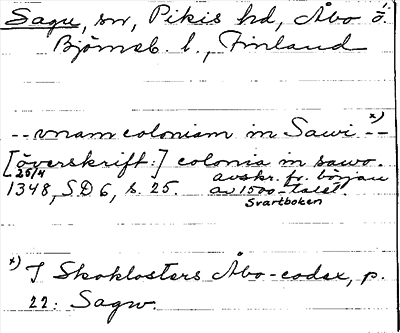 Sagu, sn, Pikis hd, Åbo o.
Björneb. l., Finland
-- unam coloniam in Sawi x) --
[överskrift:] colonia in sawo.
25/4 1348, SD 6, s. 25. avskr. fr. början
av 1500-talet.
Svartboken
x) I Skoklosters Åbo-codex, p.
22: Sagw.